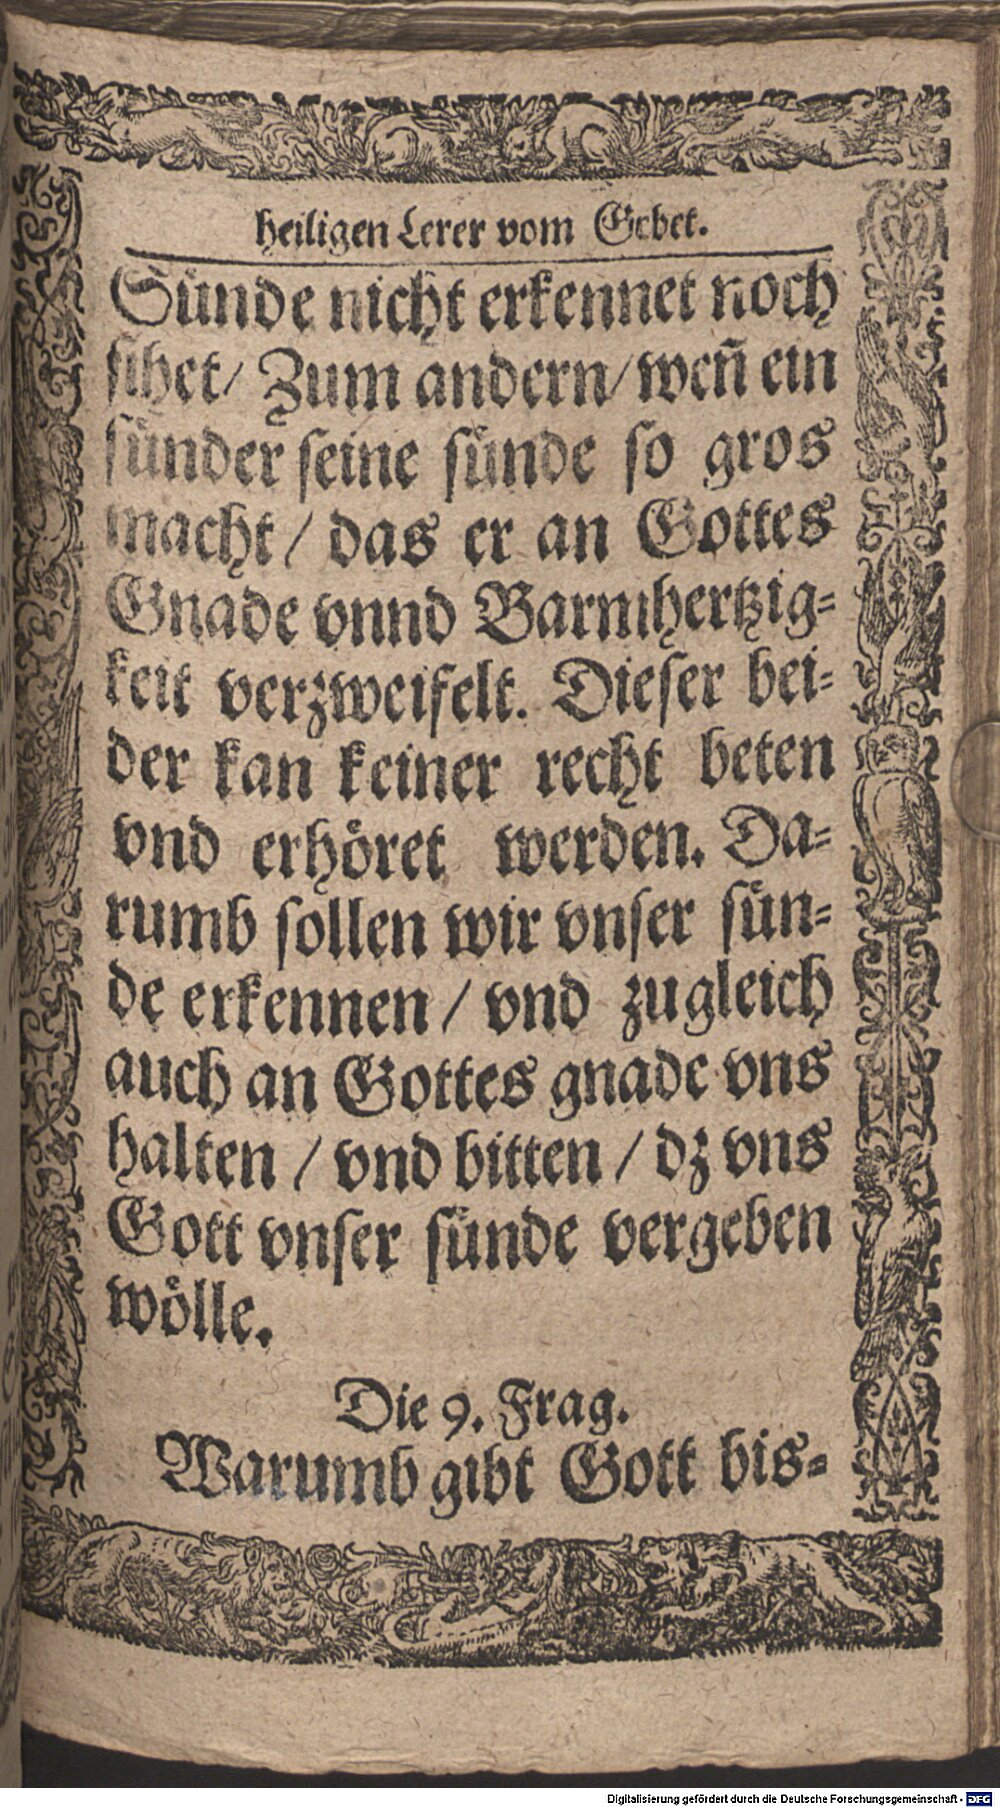 heiligen Lerer vom Gebet.
Sünde nicht erkennet noch
sihet/ Zum andern/ weñ ein
sünder seine sünde so gros
macht / das er an Gottes
Gnade vnnd Barmhertzig=
keit verzweifelt. Dieser bei=
der kan keiner recht beten
vnd erhöret werden. Da=
rumb sollen wir vnser sün=
de erkennen / vnd zugleich
auch an Gottes gnade vns
halten / vnd bitten / dz vns
Gott vnser sünde vergeben
wölle.
Die 9. Frag.
Warumb gibt Gott bis=
Digitalisierung gefördert durch die Deutsche Forschungsgemeinschaft - DFG